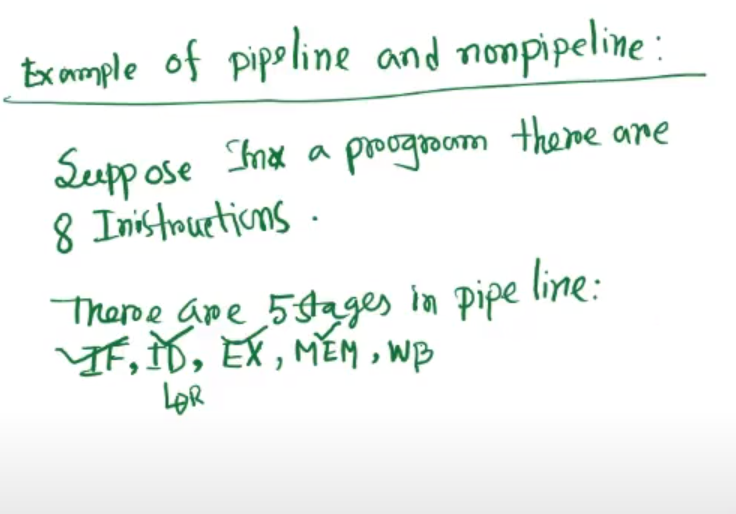 Example of pipeline and nonpipeline:
Suppose In a program there are
8 Inistructions.
There are 5 stages in pipe line:
IF, ID, EX, MEM, WB
OR